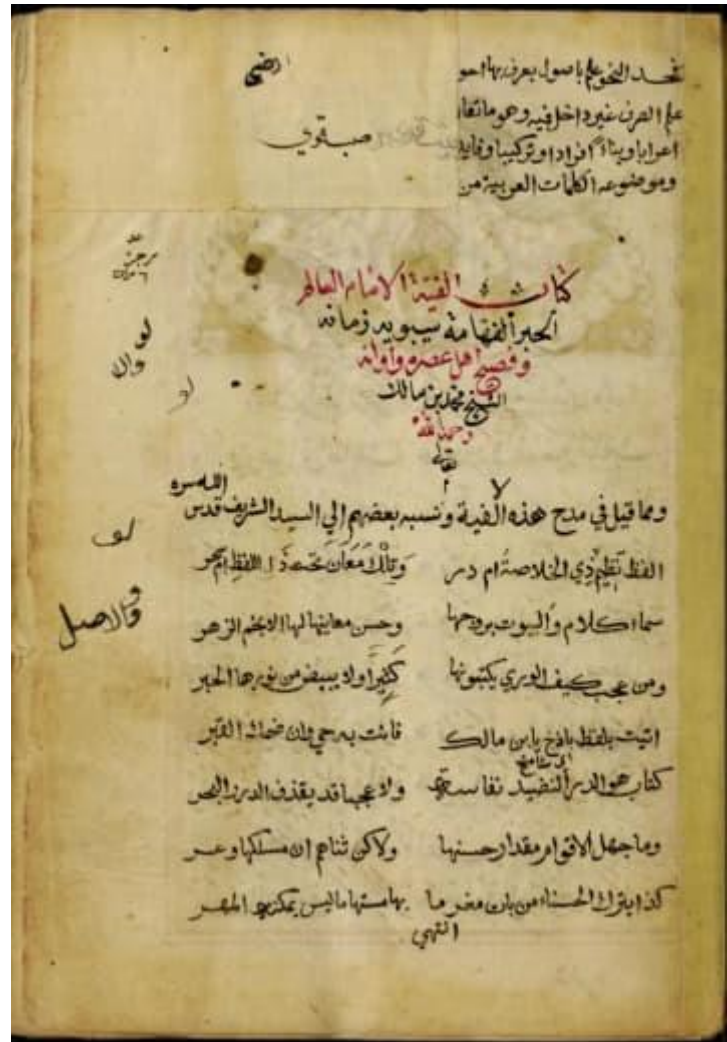 حد النحو علم باصول يعرف بها احو
علم الصرف غير داخل فيه وهو ما تقا
اعرابا وبناءً افرادا وتركيبا وفايد
وموضوعه الكلمات العربية من
كتاب الفية الامام العالم
الحبر الفهامة سيبويه زمانه
وفصيح اهل عصره واوانه
الشيخ محمد بن مالك
رحمه الله
تعالى
ومما قيل في مدح هذه الالفية ونسبه بعضهم الي السيد الشريف قدس الله سره
الفظ نظيم ذي الخلاصة ام در وتلك معان تحت ذا اللفظ ام سحر
سماء كلام والبيوت بروجها وحسن معانيها لها الانجم الزهر
ومن عجب كيف الوري يكتبونها كثيرا ولا يبيض من نورها الحبر
اتيت بلفظ باذخ يا بن مالك فانت به حي وان ضمك القبر
اي شامخ
كتاب هو الدر النضيد نفاسة ولا عجبا قد يقذف الدرر البحر
وما جهل الاقوام مقدار حسنها ولاكن ثناهم ان مسلكها وعر
كذا يترك الحسناء من بات مغرما بها مستهاما ليس يمكنه المهر
انتهي
لو
والاصل